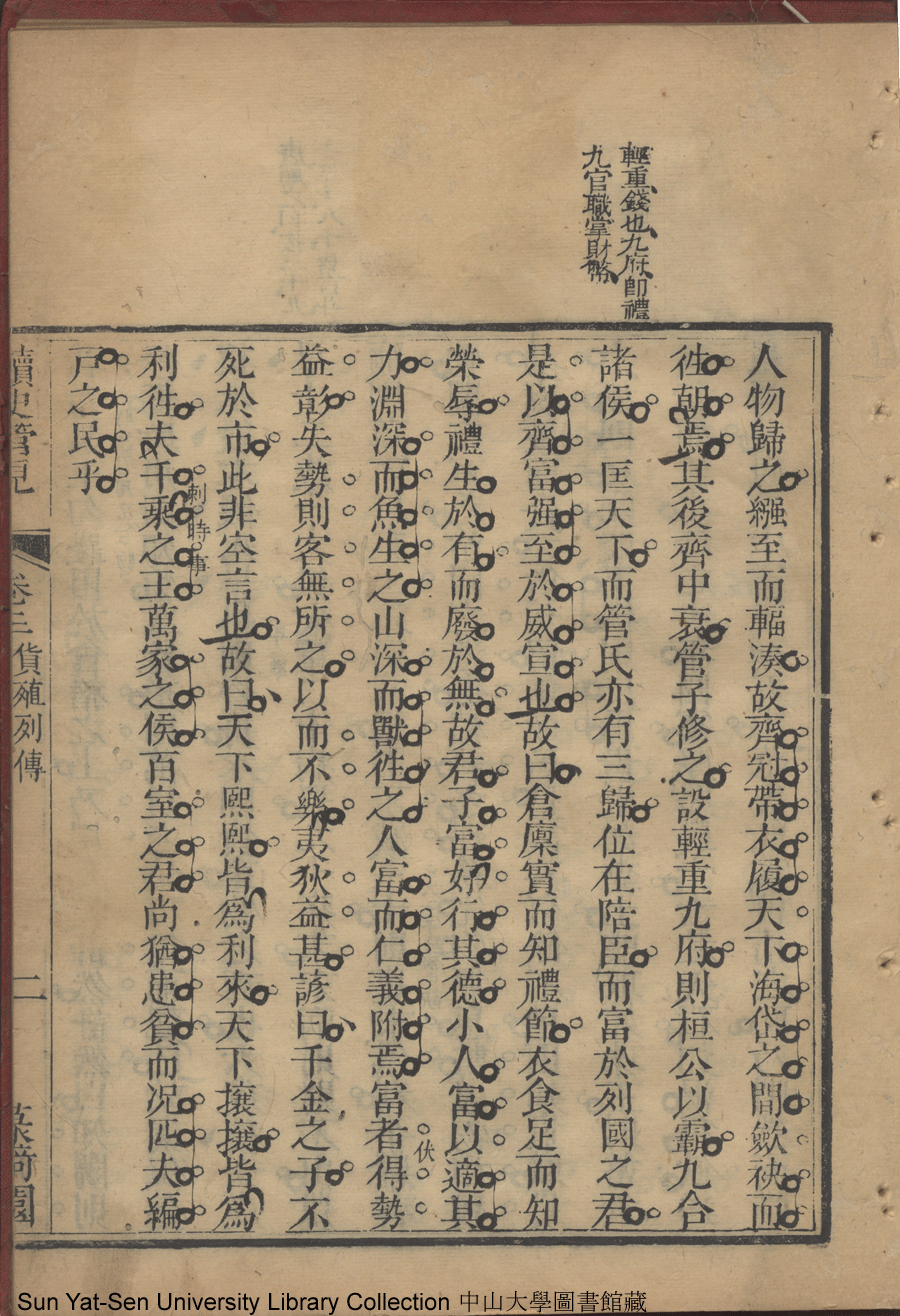 輕重錢也九府即禮
九官職掌財幣
人物歸之繦至而輻湊故齊冠帶衣履天下海岱之間歛袂而
徃朝焉其後齊中衰管子修之設輕重九府則桓公以霸九合
諸侯一匡天下而管氏亦有三歸位在陪臣而富於列國之君
是以齊富强至於威宣也故曰倉廩實而知禮節衣食足而知
榮辱禮生於有而廢於無故君子富好行其德小人富以適其
力淵深而魚生之山深而獸徃之人富而仁義附焉富者得勢
伏
益彰失勢則客無所之以而不樂夷狄益甚諺曰千金之子不
死於市此非空言也故曰天下熙熙皆為利來天下攘攘皆為
利徃夫千乘之王萬家之侯百室之君尚猶患貧而况匹夫編
刺時事
戸之民乎
讀史管見
卷三貨殖列傳
二
Sun Yat-Sen University Library Collection 中山大學圖書館藏